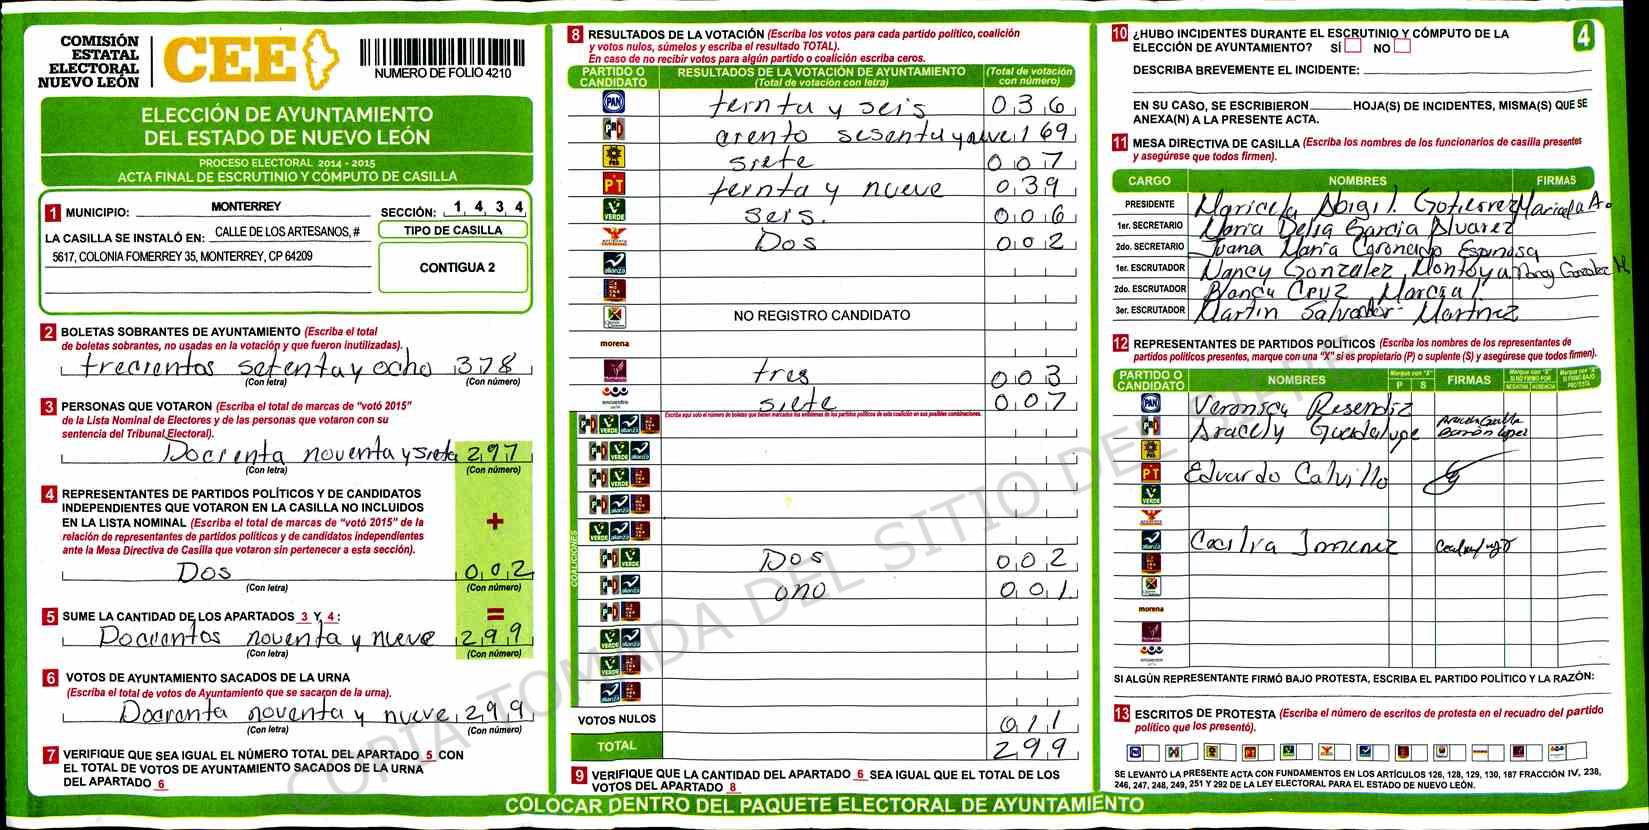 COMISIÓN
ESTATAL
ELECTORAL
NUEVO LEÓN
CEE
NUMERO DE FOLIO 4210
ELECCIÓN DE AYUNTAMIENTO
DEL ESTADO DE NUEVO LEÓN
PROCESO ELECTORAL 2014 - 2015
ACTA FINAL DE ESCRUTINIO Y CÓMPUTO DE CASILLA
1 MUNICIPIO: MONTERREY SECCIÓN: 1 4 3 4
LA CASILLA SE INSTALÓ EN: CALLE DE LOS ARTESANOS, #
5617, COLONIA FOMERREY 35, MONTERREY, CP 64209
TIPO DE CASILLA
CONTIGUA 2
2 BOLETAS SOBRANTES DE AYUNTAMIENTO (Escriba el total
de boletas sobrantes, no usadas en la votación y que fueron inutilizadas).
trecientos setenta y ocho 378
(Con letra) (Con número)
3 PERSONAS QUE VOTARON (Escriba el total de marcas de "votó 2015"
de la Lista Nominal de Electores y de las personas que votaron con su
sentencia del Tribunal Electoral).
Docienta noventa y siete 297
(Con letra) (Con número)
4 REPRESENTANTES DE PARTIDOS POLÍTICOS Y DE CANDIDATOS
INDEPENDIENTES QUE VOTARON EN LA CASILLA NO INCLUIDOS
EN LA LISTA NOMINAL (Escriba el total de marcas de "votó 2015" de la
relación de representantes de partidos políticos y de candidatos independientes
ante la Mesa Directiva de Casilla que votaron sin pertenecer a esta sección).
+
Dos 002
(Con letra) (Con número)
=
5 SUME LA CANTIDAD DE LOS APARTADOS 3 Y 4:
Docientos noventa y nueve 299
(Con letra) (Con número)
6 VOTOS DE AYUNTAMIENTO SACADOS DE LA URNA
(Escriba el total de votos de Ayuntamiento que se sacaron de la urna).
Docienta noventa y nueve 299
(Con letra) (Con número)
7 VERIFIQUE QUE SEA IGUAL EL NÚMERO TOTAL DEL APARTADO 5 CON
EL TOTAL DE VOTOS DE AYUNTAMIENTO SACADOS DE LA URNA
DEL APARTADO 6
8 RESULTADOS DE LA VOTACIÓN (Escriba los votos para cada partido político, coalición
y votos nulos, súmelos y escriba el resultado TOTAL).
En caso de no recibir votos para algún partido o coalición escriba ceros.
PARTIDO O CANDIDATO
RESULTADOS DE LA VOTACIÓN DE AYUNTAMIENTO
(Total de votación con letra)
(Total de votación con número)
PAN ternta y seis 036
PRI 169
PRD siete 007
PT ternta y nueve 039
VERDE seis. 006
Dos 002
alianza
NO REGISTRO CANDIDATO
morena
tres 003
encuentro siete 007
Escriba aquí solo el número de boletas que tienen marcados los emblemas de los partidos políticos de esta coalición en sus posibles combinaciones.
COALICIONES
PRI VERDE Dos 002
PRI alianza ono 001
VOTOS NULOS 011
TOTAL 299
9 VERIFIQUE QUE LA CANTIDAD DEL APARTADO 6 SEA IGUAL QUE EL TOTAL DE LOS
VOTOS DEL APARTADO 8
10 ¿HUBO INCIDENTES DURANTE EL ESCRUTINIO Y CÓMPUTO DE LA
ELECCIÓN DE AYUNTAMIENTO? SÍ NO
4
DESCRIBA BREVEMENTE EL INCIDENTE:
EN SU CASO, SE ESCRIBIERON HOJA(S) DE INCIDENTES, MISMA(S) QUE SE
ANEXA(N) A LA PRESENTE ACTA.
11 MESA DIRECTIVA DE CASILLA (Escriba los nombres de los funcionarios de casilla presentes
y asegúrese que todos firmen).
CARGO NOMBRES FIRMAS
PRESIDENTE Maricela Abigil. Gotierrez Maricela A.
1er. SECRETARIO Maria Delia Garcia Alvarez
2do. SECRETARIO Juana Maria Coronado Espinosa
1er. ESCRUTADOR Nancy Gonzalez Montoya Nancy Gonzalez M
2do. ESCRUTADOR Blanca Cruz Marcial
3er. ESCRUTADOR Martin Salvador Martinez
12 REPRESENTANTES DE PARTIDOS POLÍTICOS (Escriba los nombres de los representantes de
partidos políticos presentes, marque con una "X" si es propietario (P) o suplente (S) y asegúrese que todos firmen).
PARTIDO O CANDIDATO NOMBRES Marque con "X" P S FIRMAS Marque con "X" SI NO FIRMÓ POR NEGATIVA AUSENCIA Marque con "X" SI FIRMÓ BAJO PROTESTA
PAN Veronica Resendiz
PRI Aracely Guadalupe
PRD
PT Eduardo Calvillo
VERDE
alianza Cecilia Jimenez
morena
encuentro
SI ALGÚN REPRESENTANTE FIRMÓ BAJO PROTESTA, ESCRIBA EL PARTIDO POLÍTICO Y LA RAZÓN:
13 ESCRITOS DE PROTESTA (Escriba el número de escritos de protesta en el recuadro del partido
político que los presentó).
SE LEVANTÓ LA PRESENTE ACTA CON FUNDAMENTOS EN LOS ARTÍCULOS 126, 128, 129, 130, 187 FRACCIÓN IV, 238,
246, 247, 248, 249, 251 Y 292 DE LA LEY ELECTORAL PARA EL ESTADO DE NUEVO LEÓN.
COLOCAR DENTRO DEL PAQUETE ELECTORAL DE AYUNTAMIENTO
COPIA TOMADA DEL SITIO DEL SIPRE